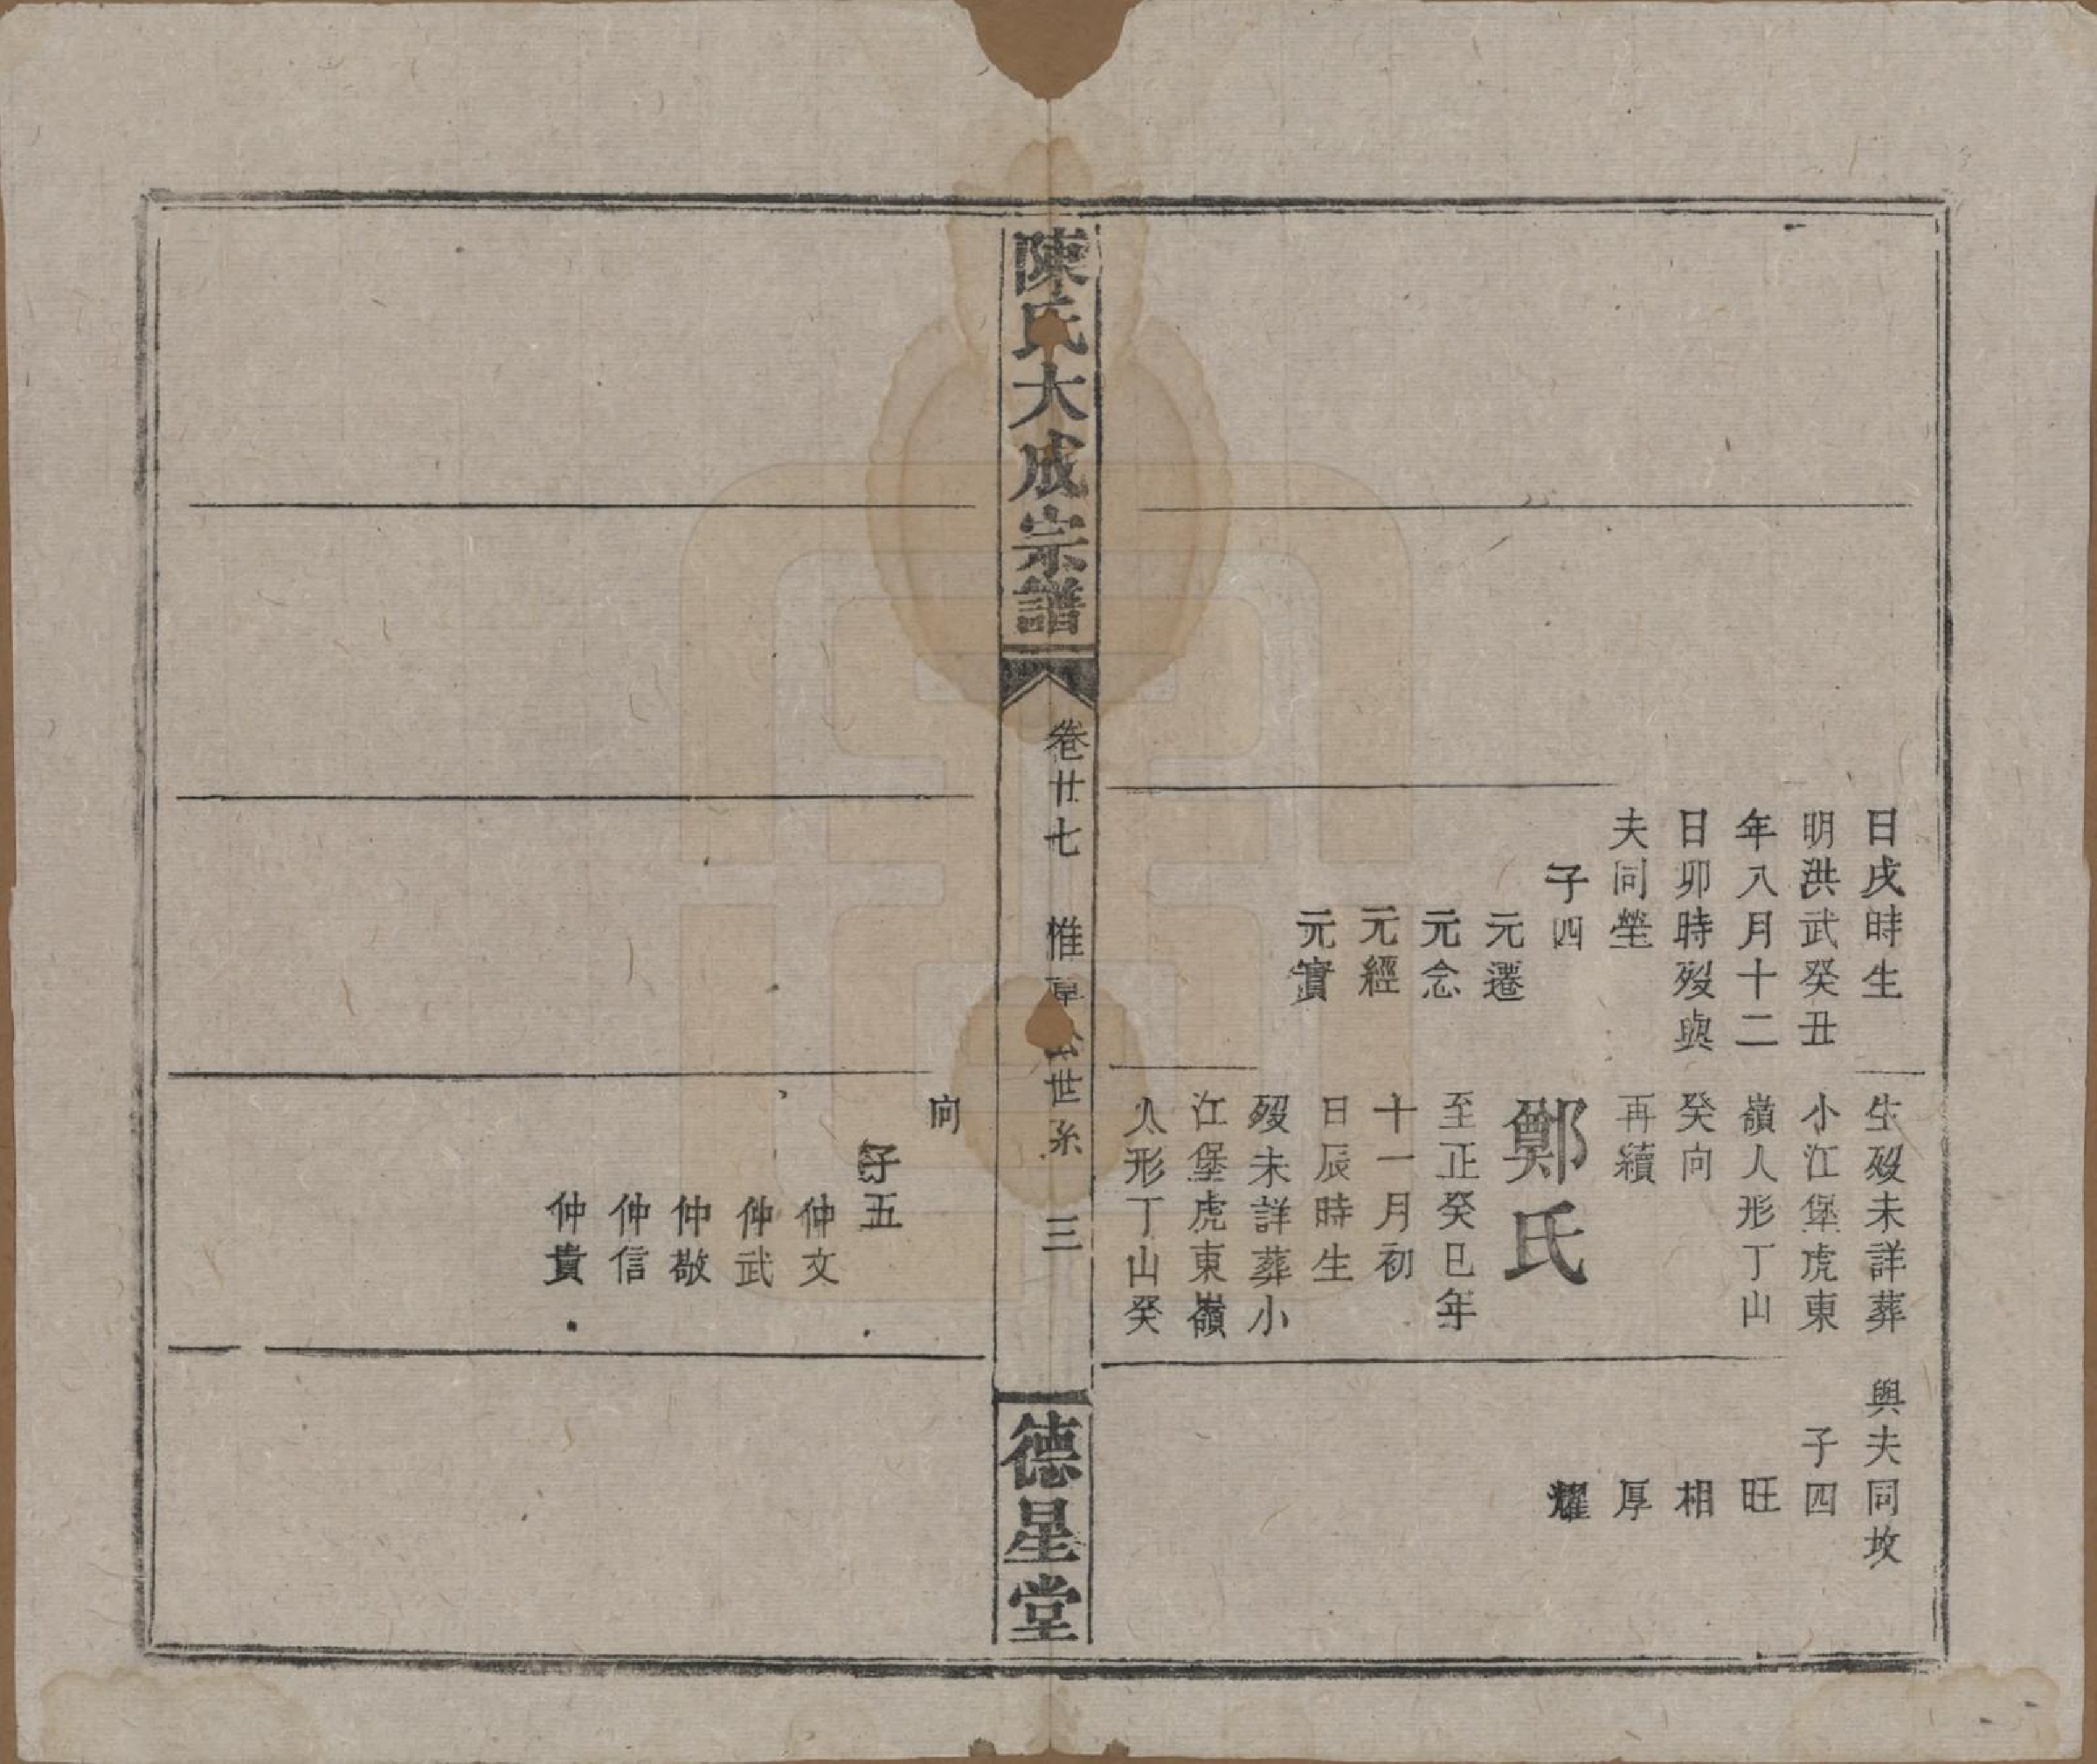 日戌時生
明洪武癸丑
年八月十二
日卯時歿與
夫同塋
子四
元遷
元念
元經
元實
生歿未詳葬
小江堡虎東
嶺人形丁山
癸向
再續
鄭氏
至正癸巳年
十一月初
日辰時生
歿未詳葬小
江堡虎東嶺
人形丁山癸
與夫同坟
子四
旺
相
厚
耀
陳氏大成宗譜
卷廿七
惟 公世系
三
德星堂
向
子五
仲文
仲武
仲敬
仲信
仲貴